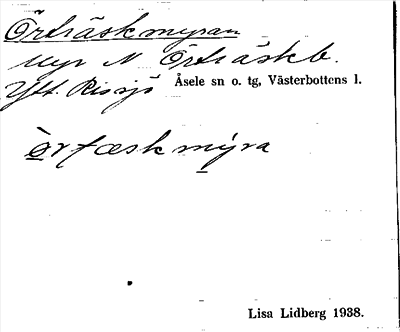 Örträskmyran
Myr N Örträskb.
Ytt. Rissjö Åsele sn o. tg, Västerbottens l.
ö̀rtæskmýra
Lisa Lidberg 1938.